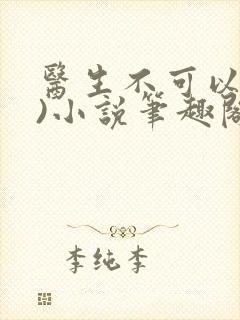 醫生不可以
)小說筆趣閣
李纯李